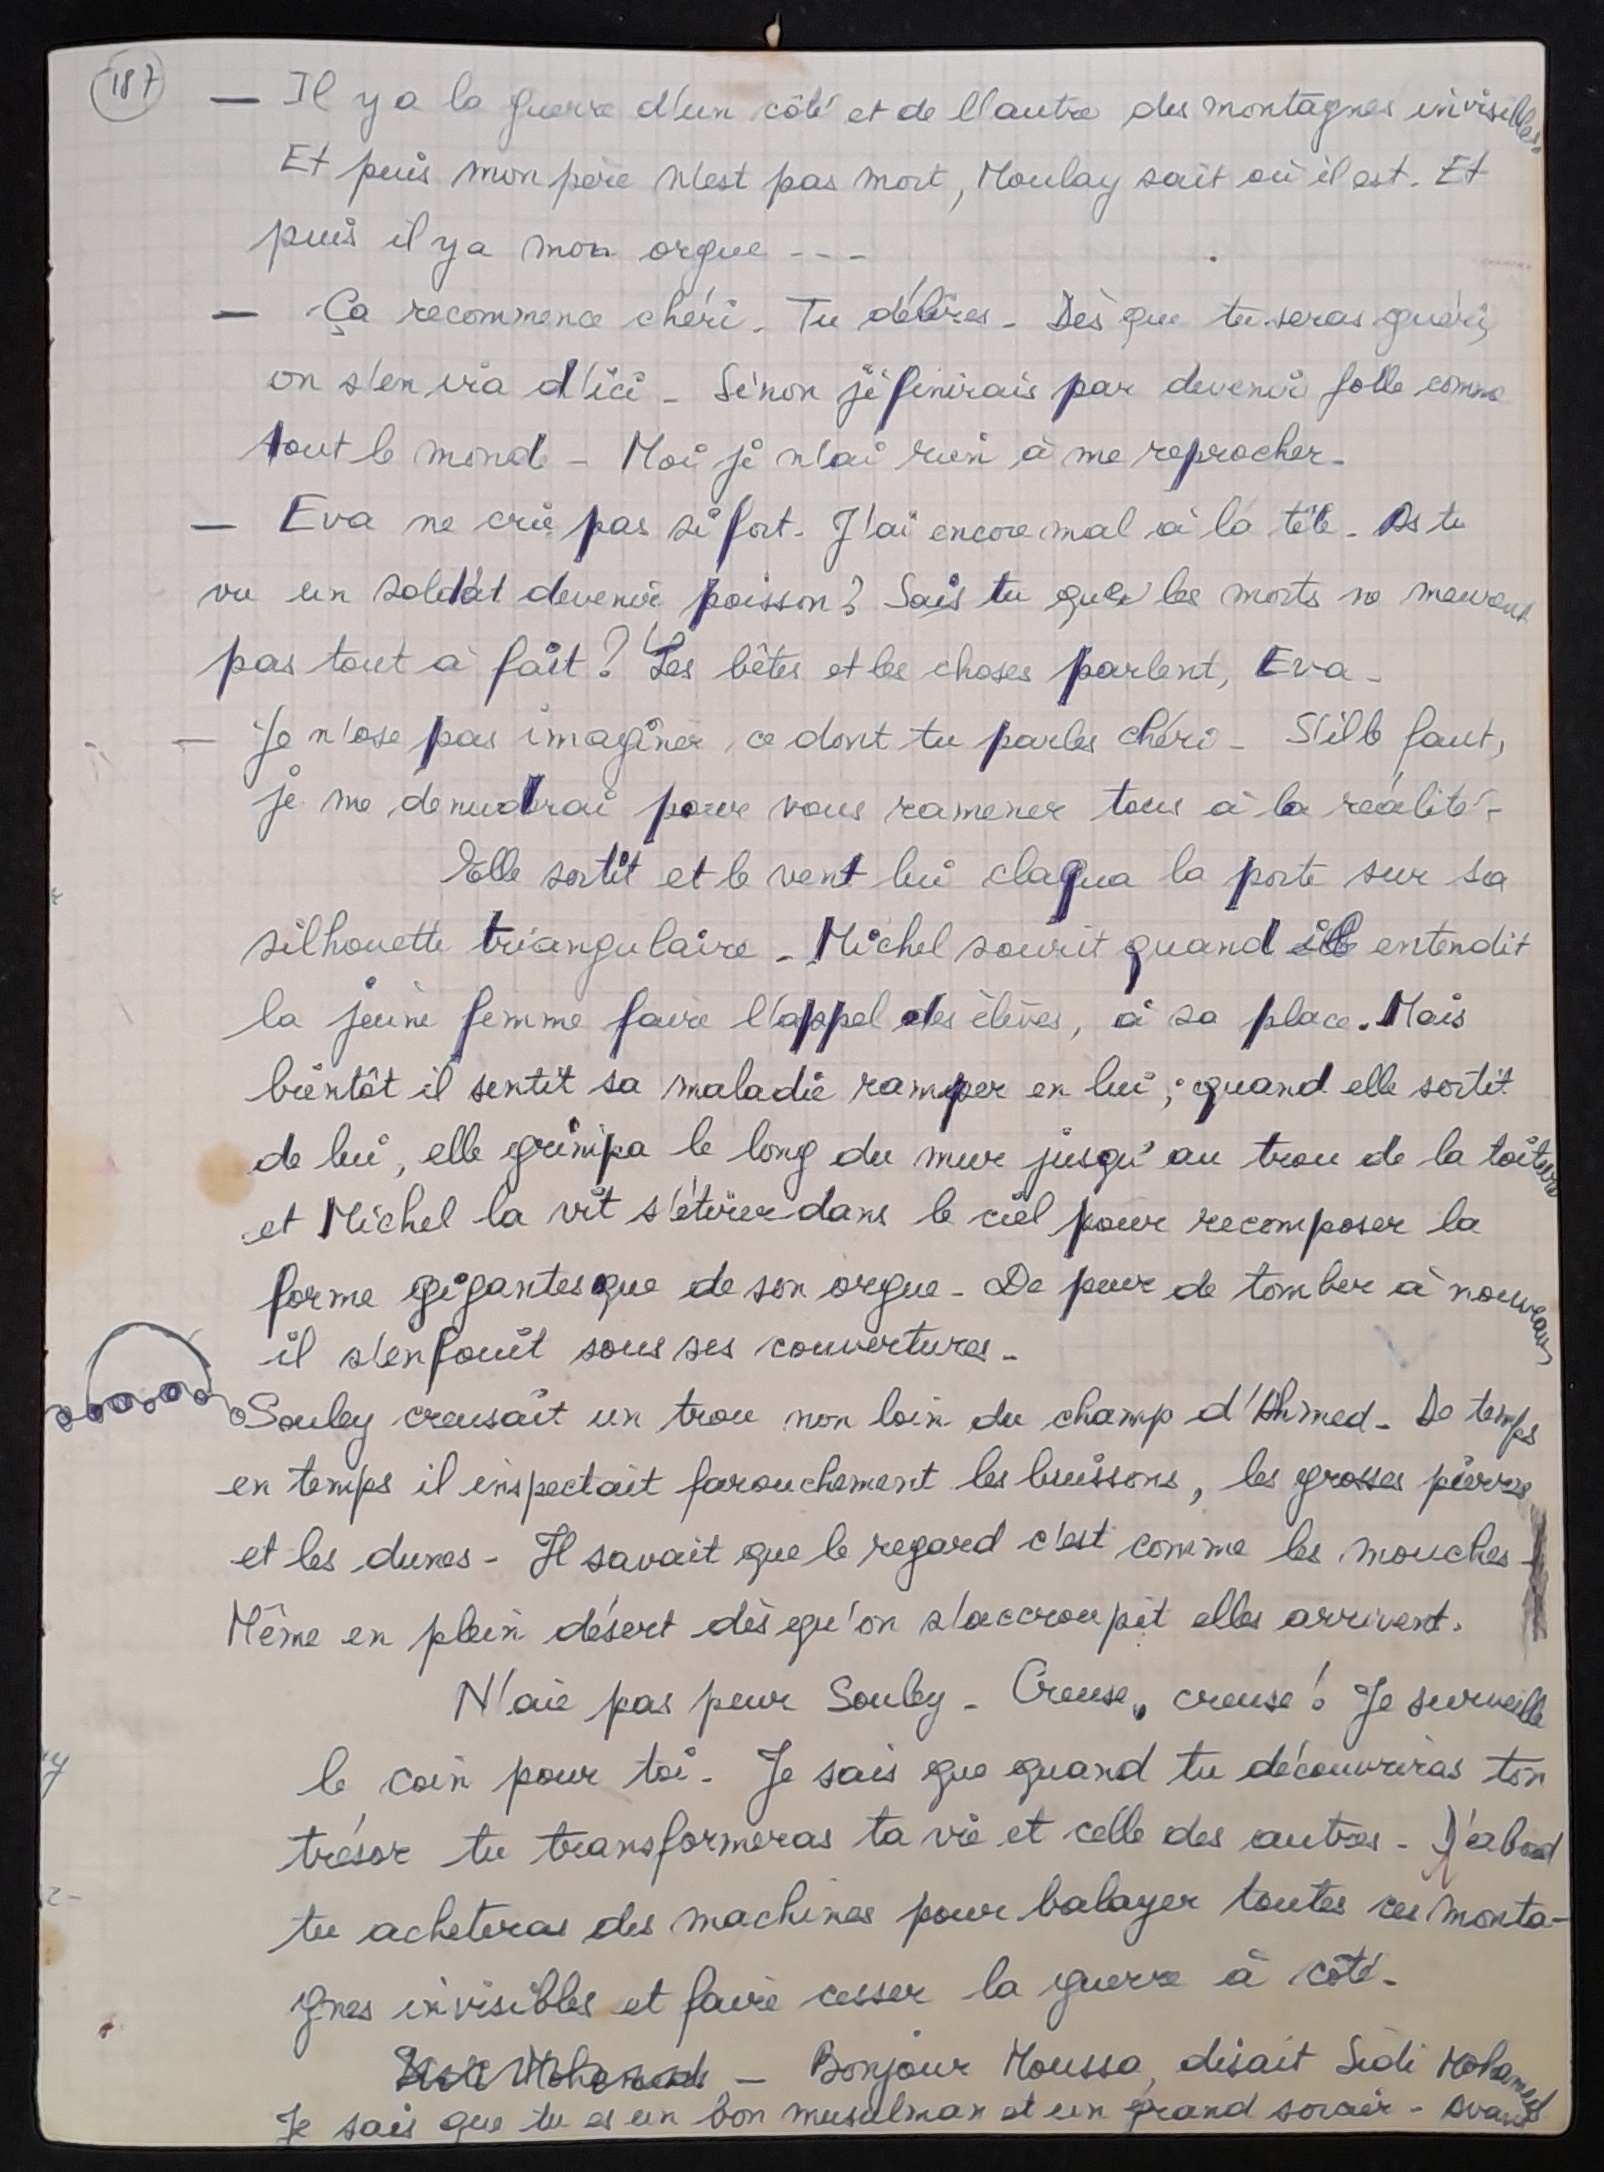 187
— Il y a la guerre d'un côté et de l'autre des montagnes invisibles.
Et puis mon père n'est pas mort, Moulay sait où il est. Et
puis il y a mon orgue ---
— Ça recommence chéri - Tu délires - Dès que tu seras guéri,
on s'en ira d'ici - Sinon je finirais par devenir folle comme
tout le monde - Moi je n'ai rien à me reprocher -
— Eva ne crie pas si fort - J'ai encore mal à la tête - As tu
vu un soldat devenir poisson ? Sais tu que les morts ne meurent
pas tout à fait ? Les bêtes et les choses parlent, Eva -
— Je n'ose pas imaginer ce dont tu parles chéri - S'il le faut,
je me denuderai pour vous ramener tous à la réalité -
Elle sortit et le vent lui claqua la porte sur sa
silhouette triangulaire - Michel sourit quand il entendit
la jeune femme faire l'appel des élèves, à sa place. Mais
bientôt il sentit sa maladie ramper en lui ; quand elle sortit
de lui, elle grimpa le long du mur jusqu'au trou de la toiture
et Michel la vit s'étirer dans le ciel pour recomposer la
forme gigantesque de son orgue - De peur de tomber à nouveau,
il s'enfouit sous ses couvertures -
Souley creusait un trou non loin du champ d'Ahmed - De temps
en temps il inspectait farouchement les buissons, les grosses pierres
et les dunes - Il savait que le regard c'est comme les mouches -
Même en plein désert dès qu'on s'accroupit elles arrivent.
N'aie pas peur Souley - Creuse, creuse ! Je surveille
le coin pour toi - Je sais que quand tu découvriras ton
trésor tu transformeras ta vie et celle des autres - D'abord
tu acheteras des machines pour balayer toutes ces monta-
gnes invisibles et faire cesser la guerre à côté -
— Bonjour Moussa, disait Sidi Mohamed
Je sais que tu es un bon musulman et un grand sorcier - Avant